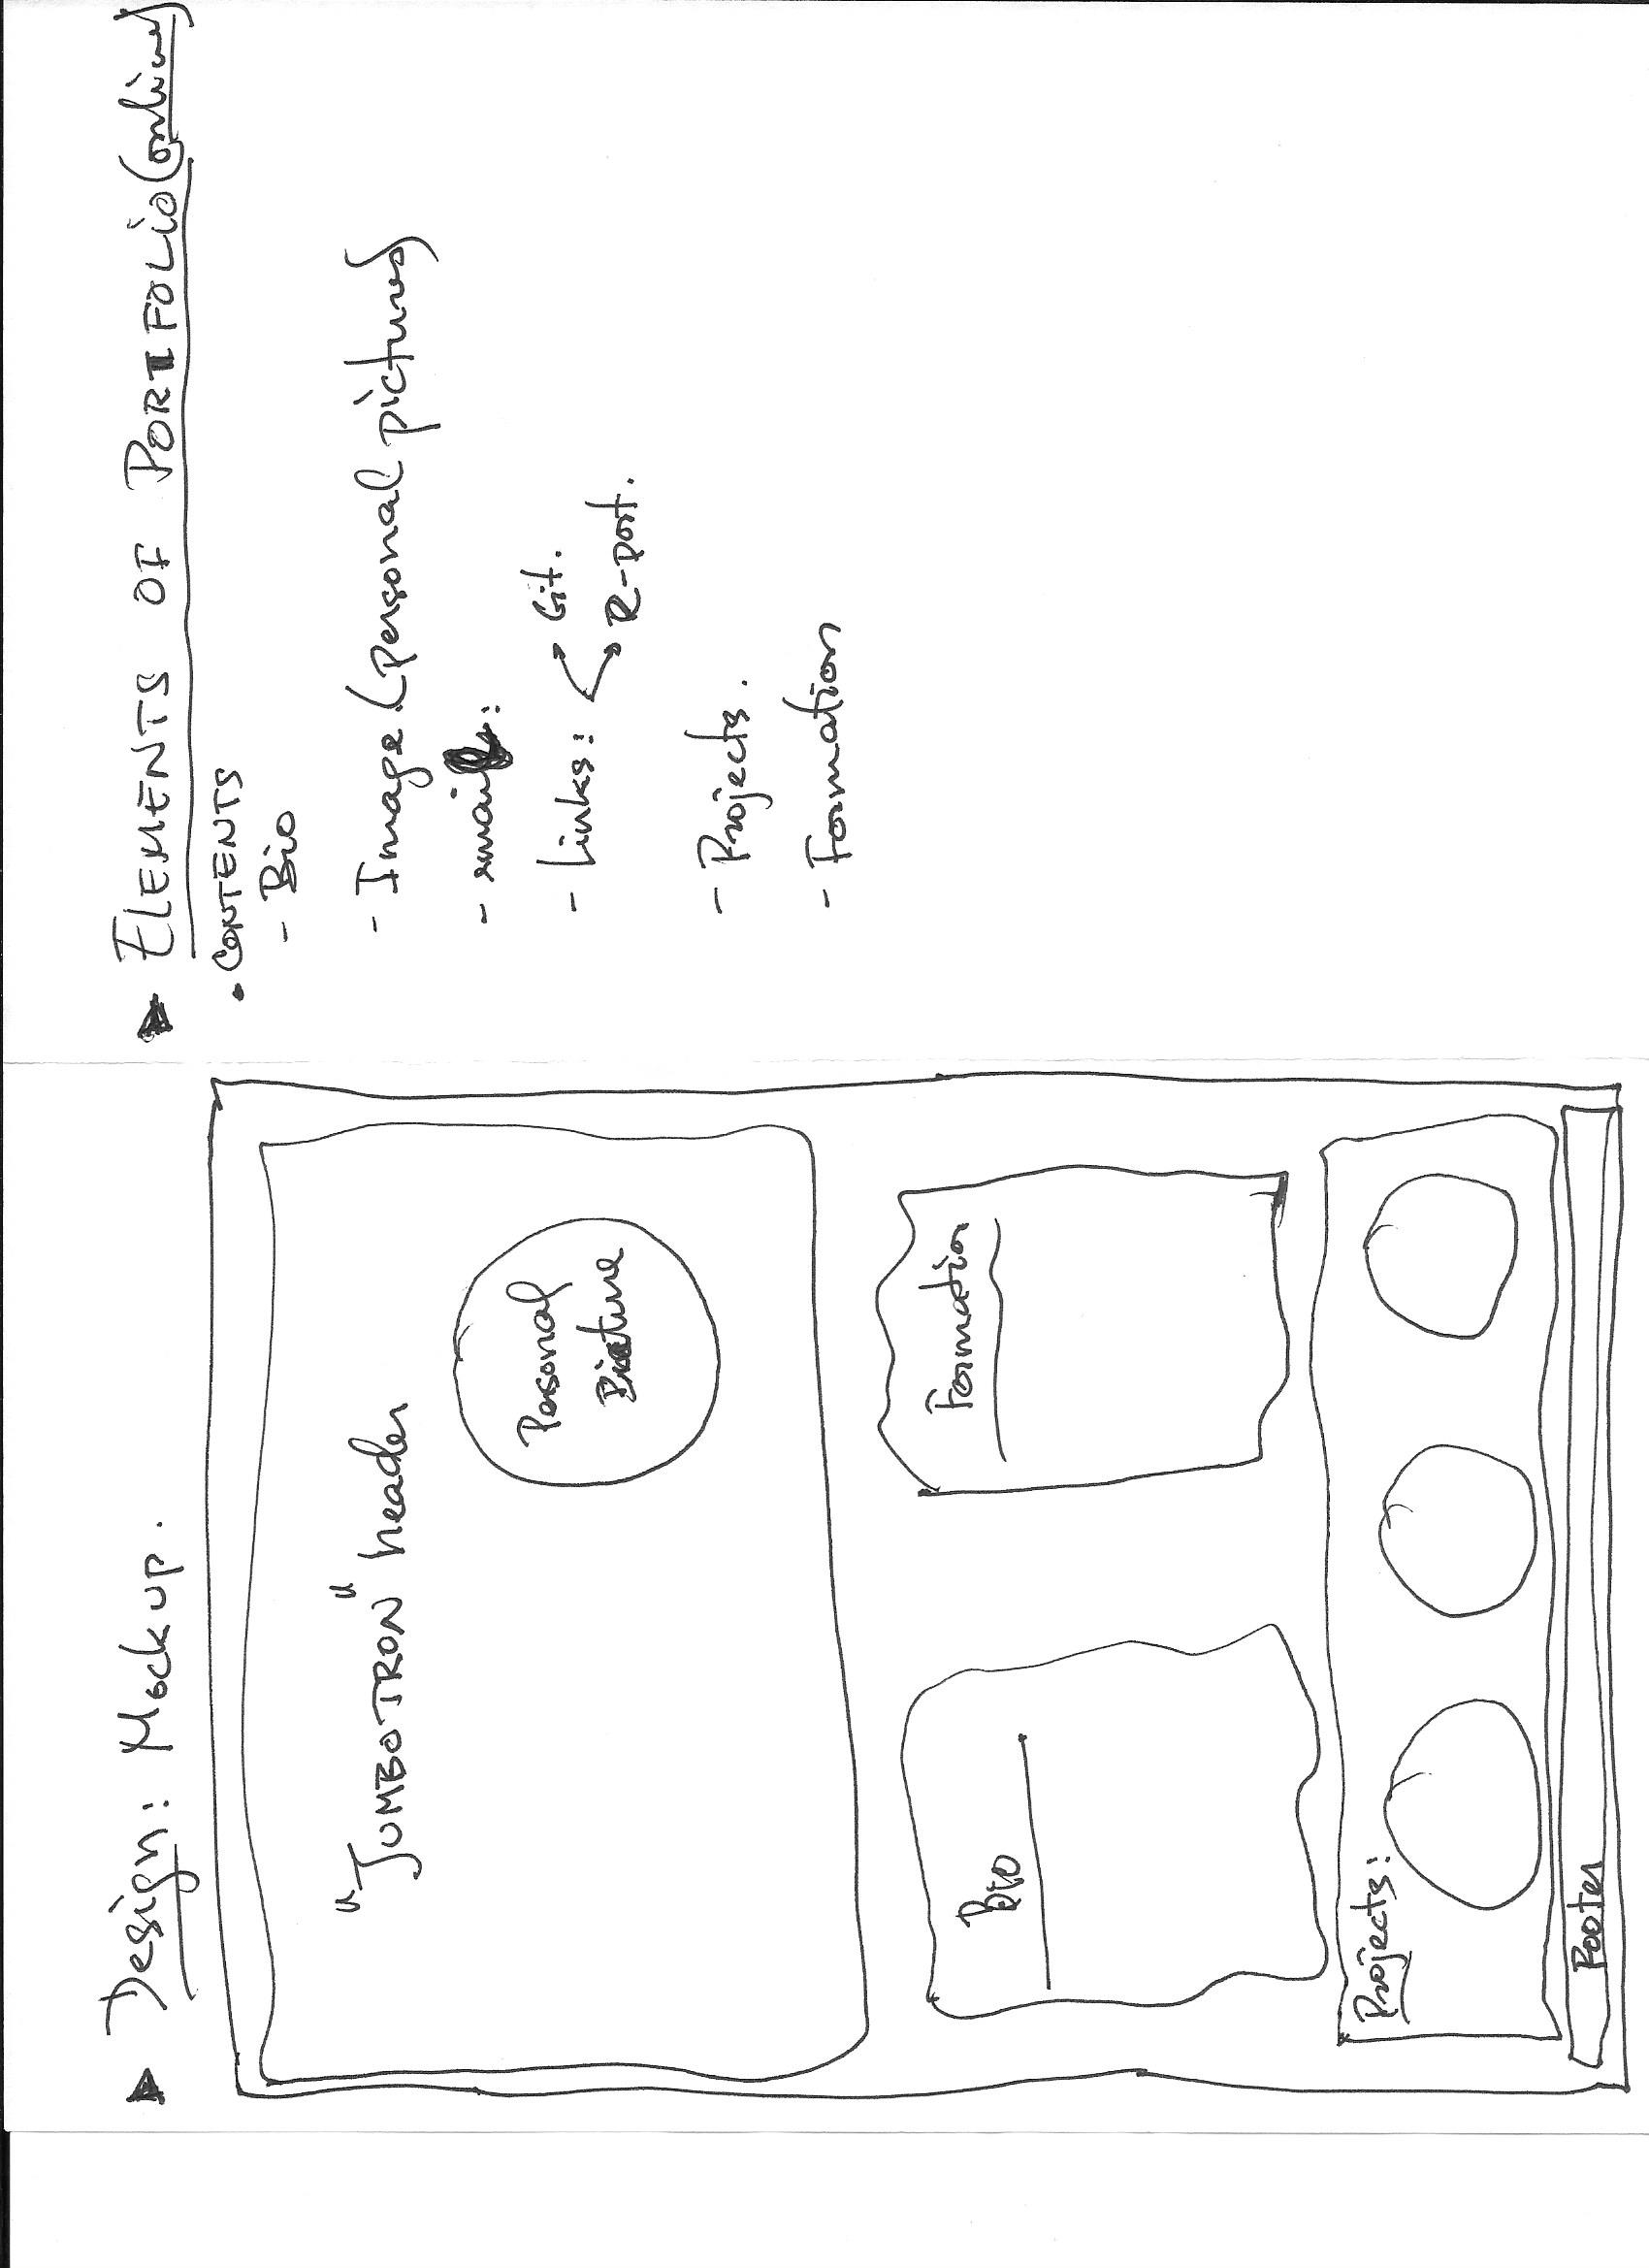 Design: Mockup.
"JUMBOTRON" header
Personal
Picture
Bio
Formation
Projects:
Footer
ELEMENTS OF PORTFOLIO (online)
• CONTENTS
- Bio
- Image (personal pictures)
- email:
- Links:
Git.
R-port.
- Projects.
- Formation